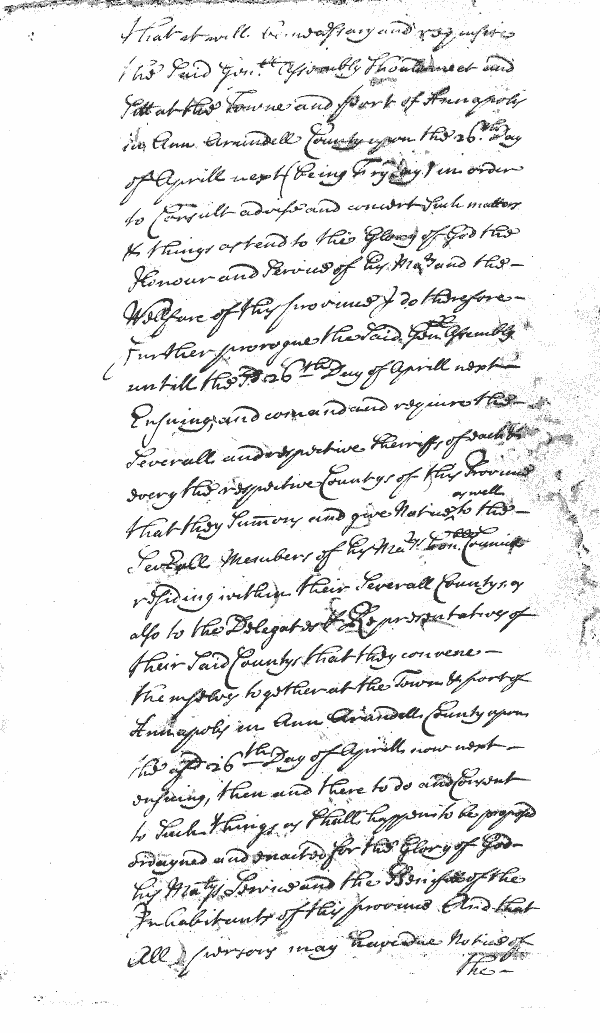 that it will be necessary and requisite
the said Gen.ll Assembly should meet and
Sitt at the Towne and port of Annapolis
in Ann Arundell County upon the 26.th Day
of Aprill next (being Fryday) in order
to Consult advise and concert Such matters
& things as tend to the Glory of God the
Honour and Service of his Ma.ty and the –
Wellfare of this province I do therefore –
Further prorogue the said Gen.ll Assembly
untill the sd 26th Day of Aprill next –
Ensuing, and comand and require the –
Severall and respective sherriffs of each &
every the respective Countys of this Province
that they Summons and give Notice as well to the –
Severall Members of his Ma.tys hon.ble Councill
residing within their Severall Countys, as
also to the Delegates & Representatives of
their Said Countys that they convene –
themselves together at the Town & port of
Annapolis in Ann Arundell County upon
the afd 26th Day of Aprill now next –
ensuing, then and there to do and Consent
to Such things as shall happen to be proposd
ordayned and enacted for the Glory of God –
his Ma.tys Service and the Benifite of the
Inhabitants of this province And that
All persons may have due Notice of
the –